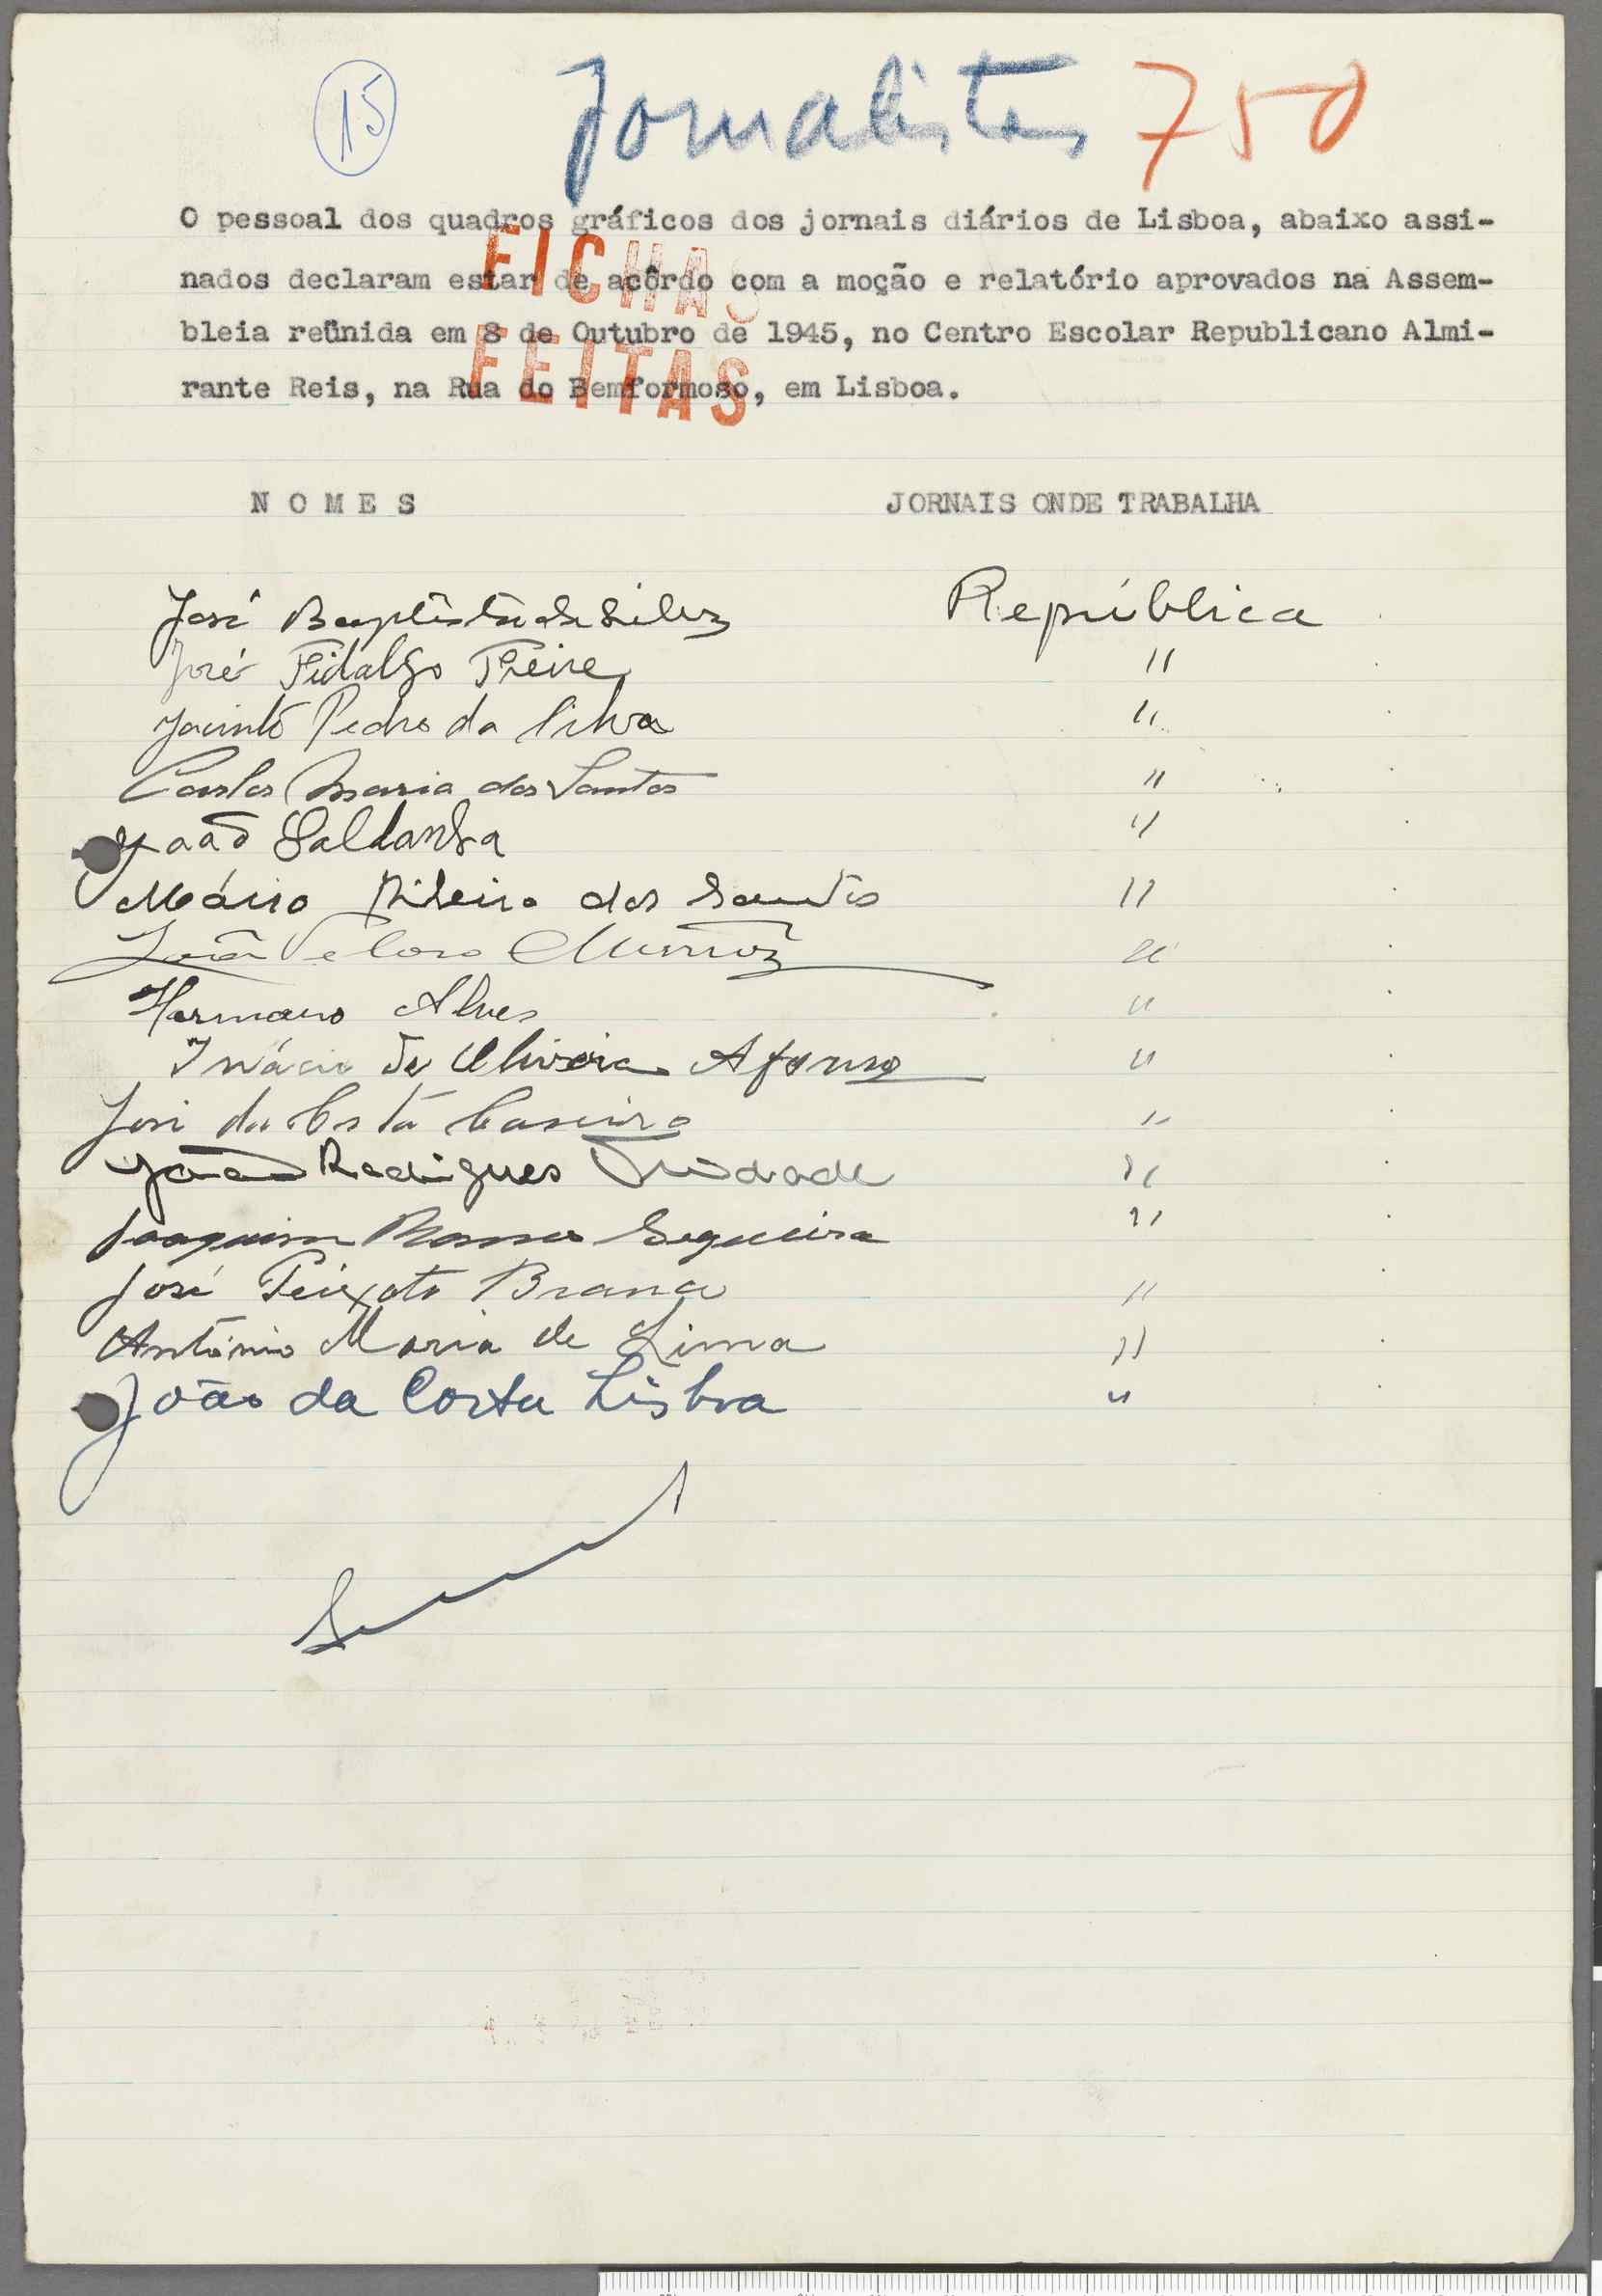 15
Jornalistas 750
O pessoal dos quadros gráficos dos jornais diários de Lisboa, abaixo assi-
nados declaram estar de acôrdo com a moção e relatório aprovados na Assem-
bleia reünida em 8 de Outubro de 1945, no Centro Escolar Republicano Almi-
rante Reis, na Rua do Bemformoso, em Lisboa.
FICHAS
FEITAS
N O M E S JORNAIS ONDE TRABALHA
José Baptista da Silva República
José Fidalgo Freire "
Jacinto Pedro da Silva "
Carlos Maria dos Santos "
João Saldanha "
Mário Ribeiro dos Santos "
João Veloso "
Hermano Alves "
Inácio de Oliveira Afonso "
José da Costa Caseiro "
João Rodrigues Trindade "
Joaquim Ramos Sequeira "
José Peixoto Brana "
António Maria de Lima "
João da Costa Lisboa "